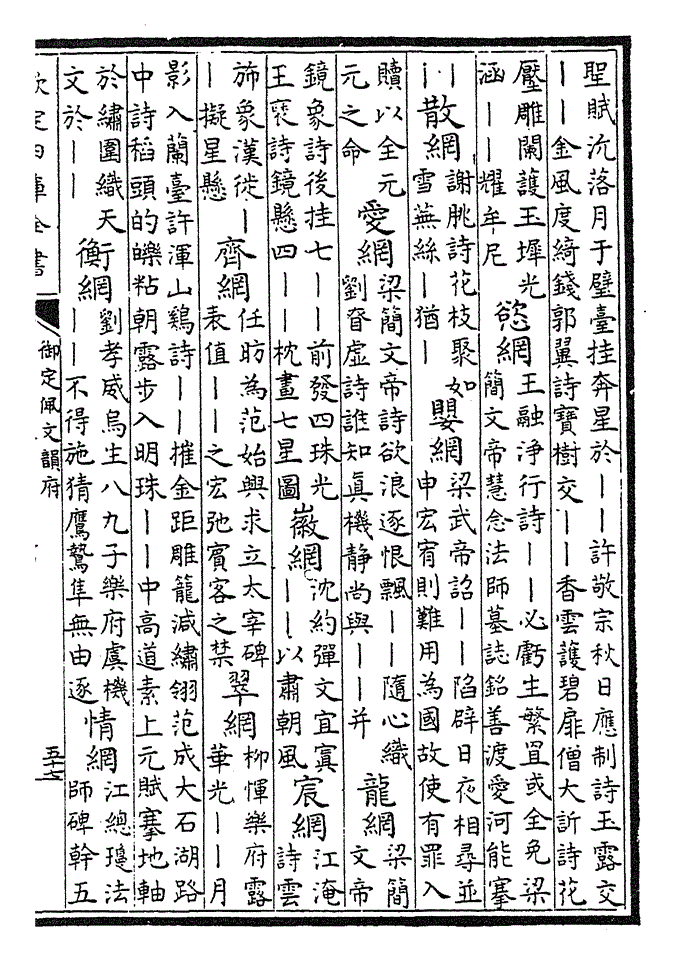 聖賦沉落月于璧臺挂奔星於丨丨許敬宗秋日應制詩玉露交
丨丨金風度綺錢郭翼詩寶樹交丨丨香雲護碧扉僧大訢詩花
壓雕闌護玉墀光
涵丨丨耀牟尼
慾網
王融淨行詩丨丨必虧生繁罝或全免梁
簡文帝慧念法師墓誌銘善渡愛河能搴
丨
丨
散網
謝朓詩花枝聚如
雪蕪絲丨猶丨
嬰網
梁武帝詔丨丨陷辟日夜相尋並
申宏宥則難用為國故使有罪入
贖以全元
元之命
愛網
梁簡文帝詩欲浪逐恨飄丨丨隨心織
劉眘虛詩誰知眞機靜尚與丨丨并
龍網
梁簡
文帝
鏡象詩後挂七丨丨前發四珠光
王褒詩鏡懸四丨丨枕畫七星圖
徽網
沈約彈文宜寘
丨丨以肅朝風
宸網
江淹
詩雲
斾象漢徙丨
丨擬星懸
齊網
任昉為范始興求立太宰碑
表值丨丨之宏弛賓客之禁
翠網
柳惲樂府露
華光丨丨月
影入蘭臺許渾山鷄詩丨丨摧金距雕籠減繡翎范成大石湖路
中詩稻頭的皪粘朝露步入明珠丨丨中高道素上元賦搴地軸
於繡圍織天
文於丨丨
衡網
劉孝威烏生八九子樂府虞機
丨丨不得施猜鷹鷙隼無由逐
情網
江總瓊法
師碑幹五
欽定四庫全書
御定佩文韻府